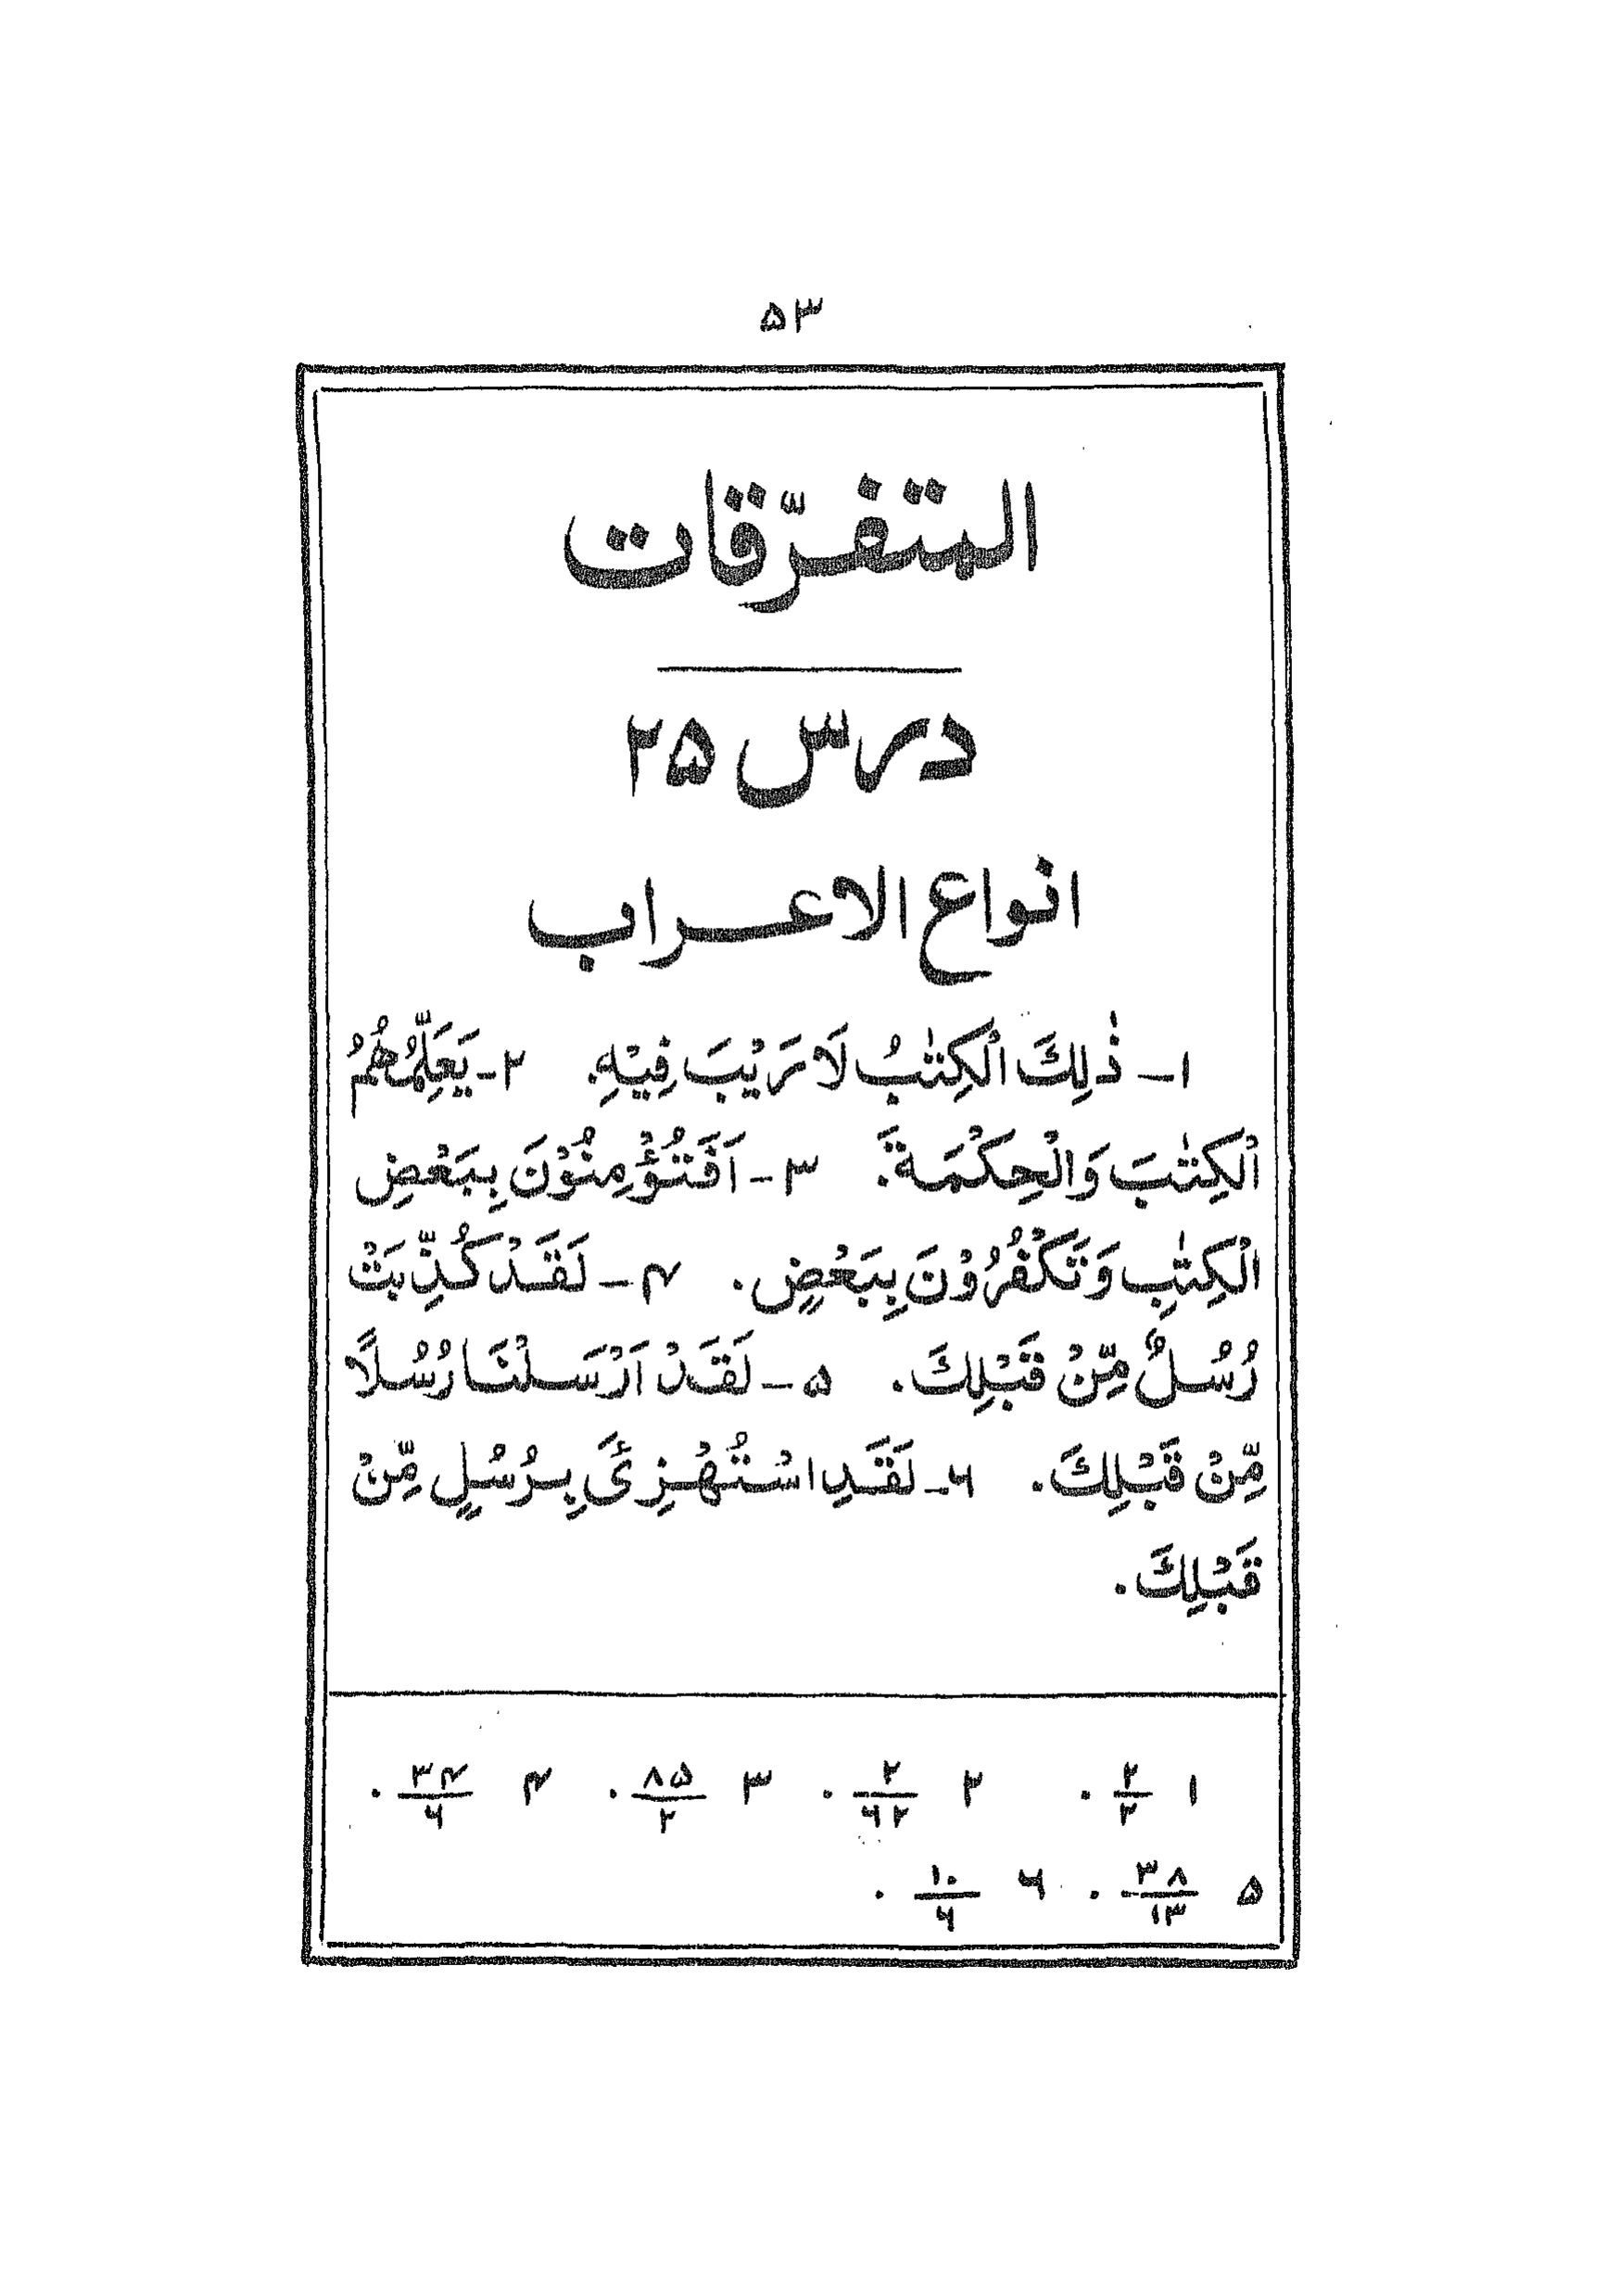 ۵۳
المتفرّقات
درس ۲۵
انواع الاعراب
۱ـ ذٰلِكَ الْكِتٰبُ لَا رَيْبَ فِيْهِ. ۲ـ يُعَلِّمُهُمُ
الْكِتٰبَ وَالْحِكْمَةَ. ۳ـ اَفَتُؤْمِنُوْنَ بِبَعْضِ
الْكِتٰبِ وَتَكْفُرُوْنَ بِبَعْضٍ. ۴ـ لَقَدْ كُذِّبَتْ
رُسُلٌ مِّنْ قَبْلِكَ. ۵ـ لَقَدْ اَرْسَلْنَا رُسُلًا
مِّنْ قَبْلِكَ. ۶ـ لَقَدِ اسْتُهْزِئَ بِرُسُلٍ مِّنْ
قَبْلِكَ.
۱ ۲/۲ . ۲ ۲/۶۲ . ۳ ۸۵/۲ . ۴ ۳۴/۶ .
۵ ۳۸/۱۳ . ۶ ۱۰/۶ .